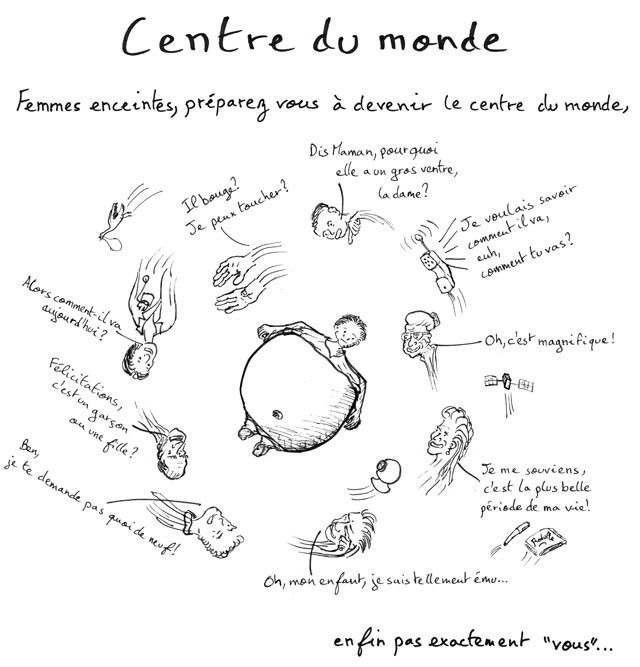 Centre du monde
Femmes enceintes, préparez vous à devenir le centre du monde,
Dis Maman, pourquoi
elle a un gros ventre,
la dame?
Il bouge?
Je peux toucher?
Je voulais savoir
comment il va,
euh,
comment tu vas?
Alors comment-il va
aujourd'hui?
Oh, c'est magnifique!
Félicitations,
c'est un garçon
ou une fille?
Ben,
je te demande pas quoi de neuf!
Je me souviens,
c'est la plus belle
période de ma vie!
Oh, mon enfant, je suis tellement ému...
enfin pas exactement "vous"...